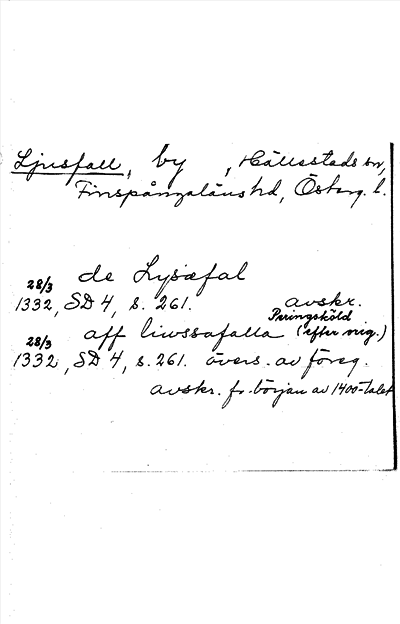 Ljusfall, by, Hällestads sn,
Finspångaläns hd, Österg. l.
de Lysæfal
28/3 1332, SD 4, s. 261. avskr.
Peringsköld
aff liwssafalla (efter orig.)
28/3 1332, SD 4, s. 261. övers. av föreg.
avskr. fr. början av 1400-talet